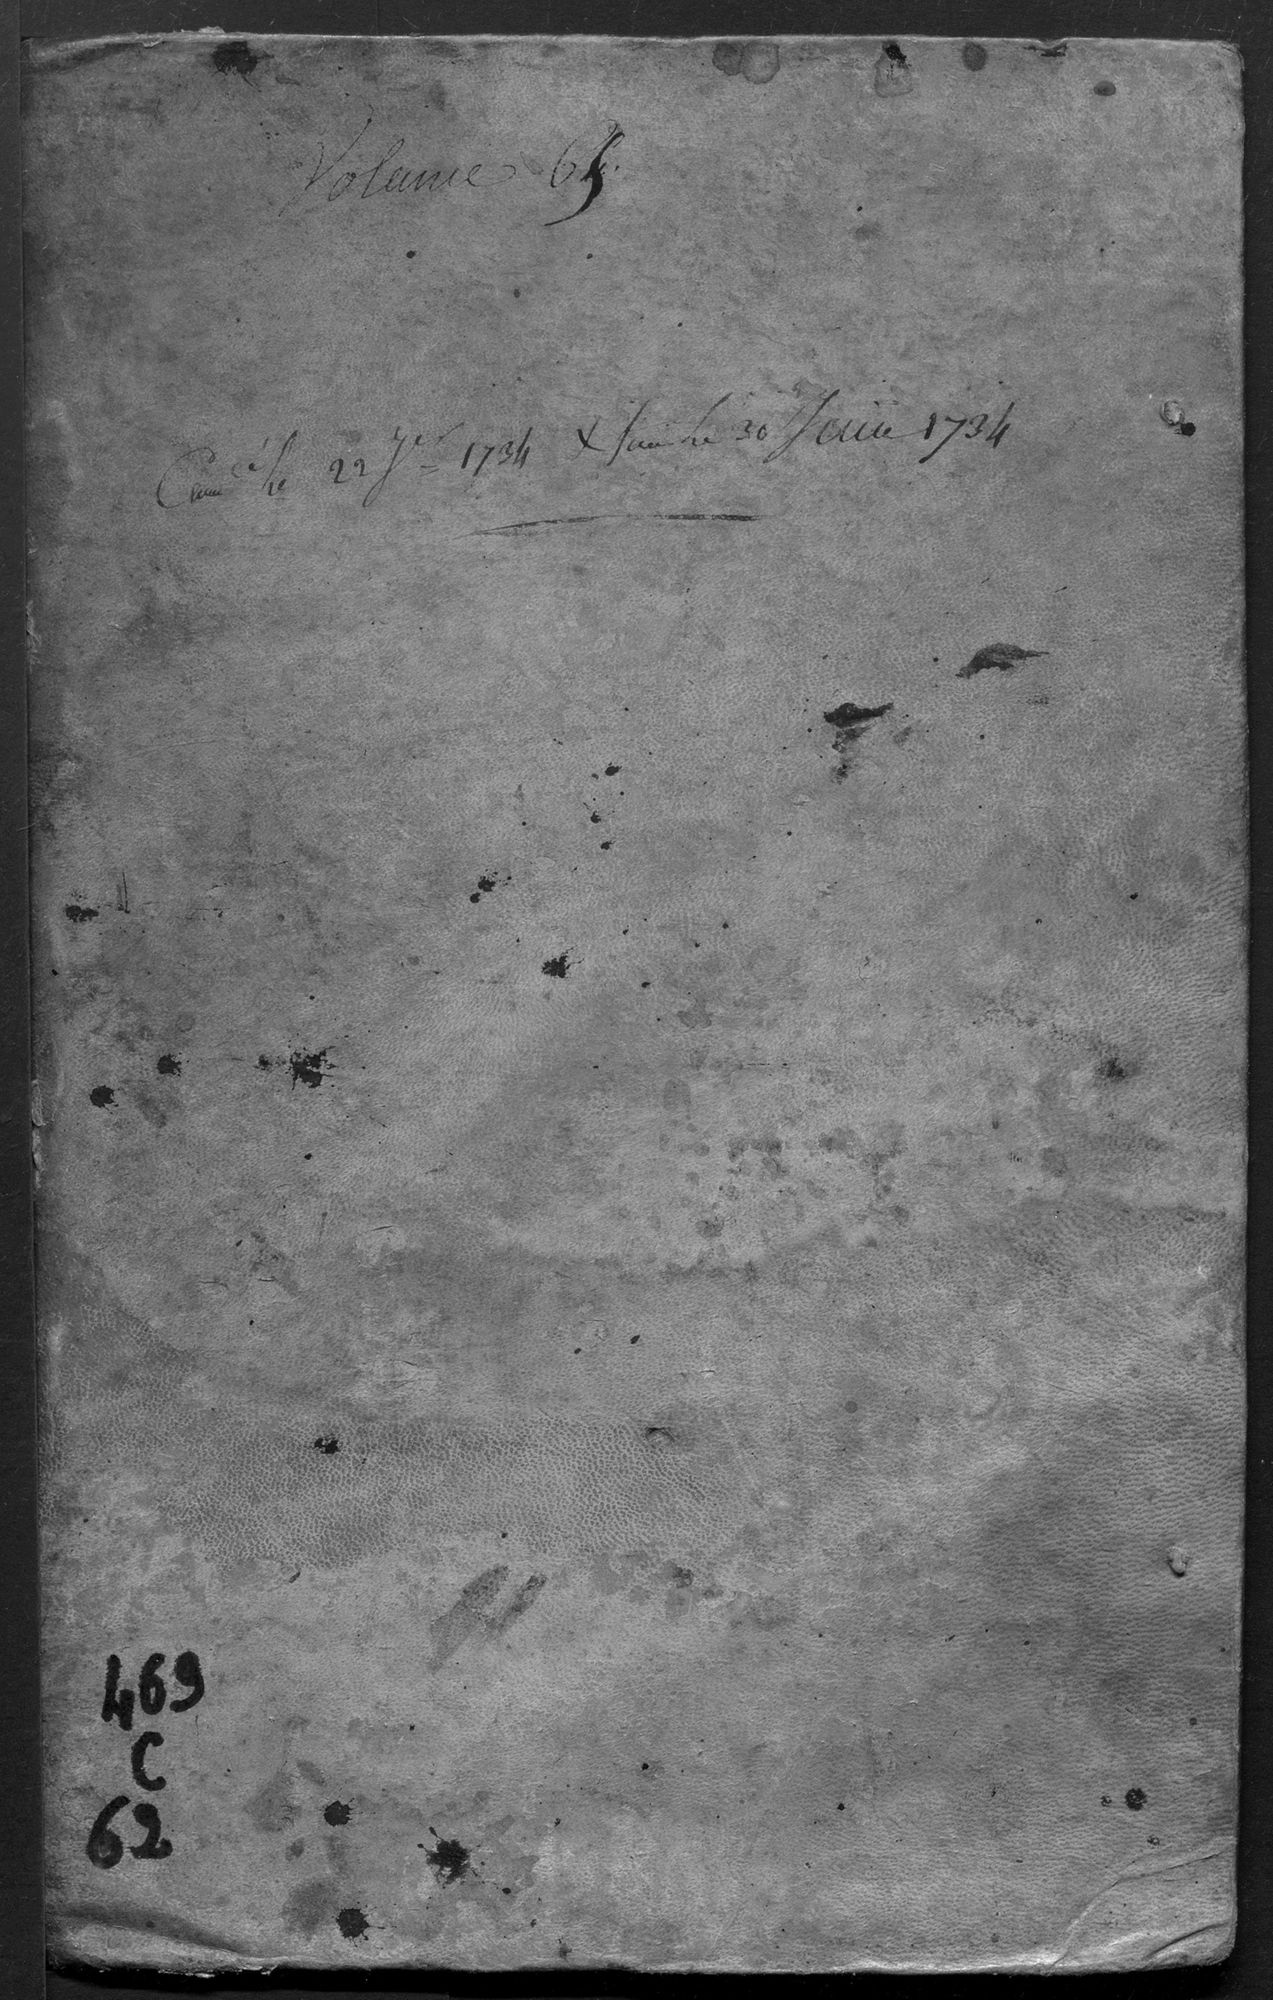 Volume 65.
Com.cé le 22 J.er 1734 & fini le 30 Juin 1734
469
C
62